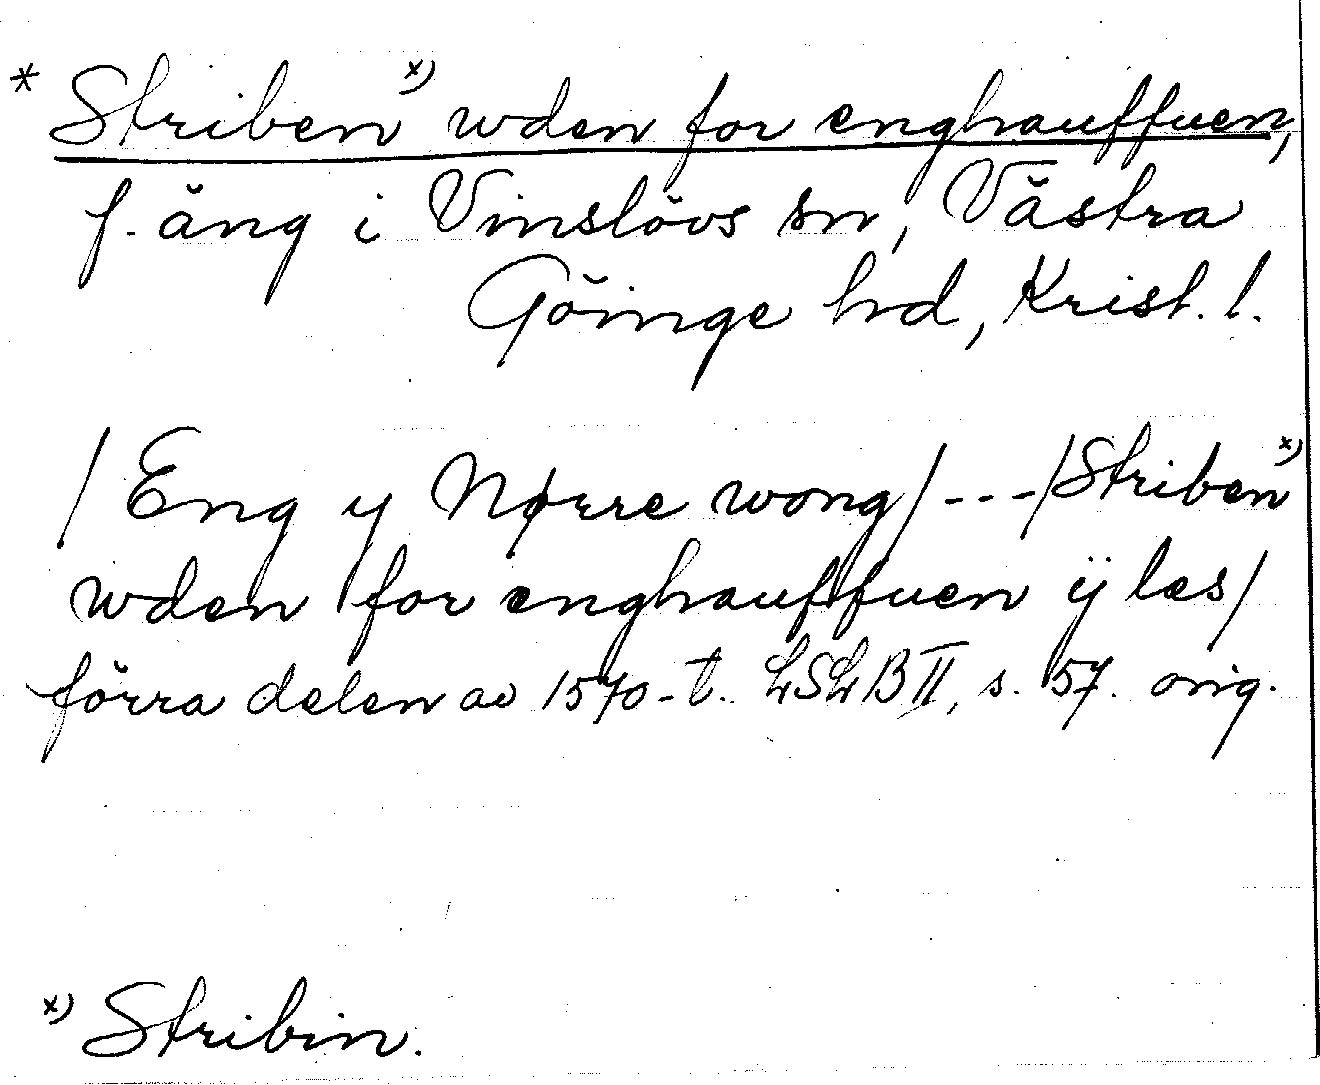 * Striben x) wden for enghauffuen,
f. äng i Vinslövs sn, Västra
Göinge hd, Krist. l.
/ Eng y Nørre wong / - - - / Striben x)
wden for enghauffuen ÿ læs /
förra delen av 1570-t. LSLB II, s. 57. orig.
x) Stribin.